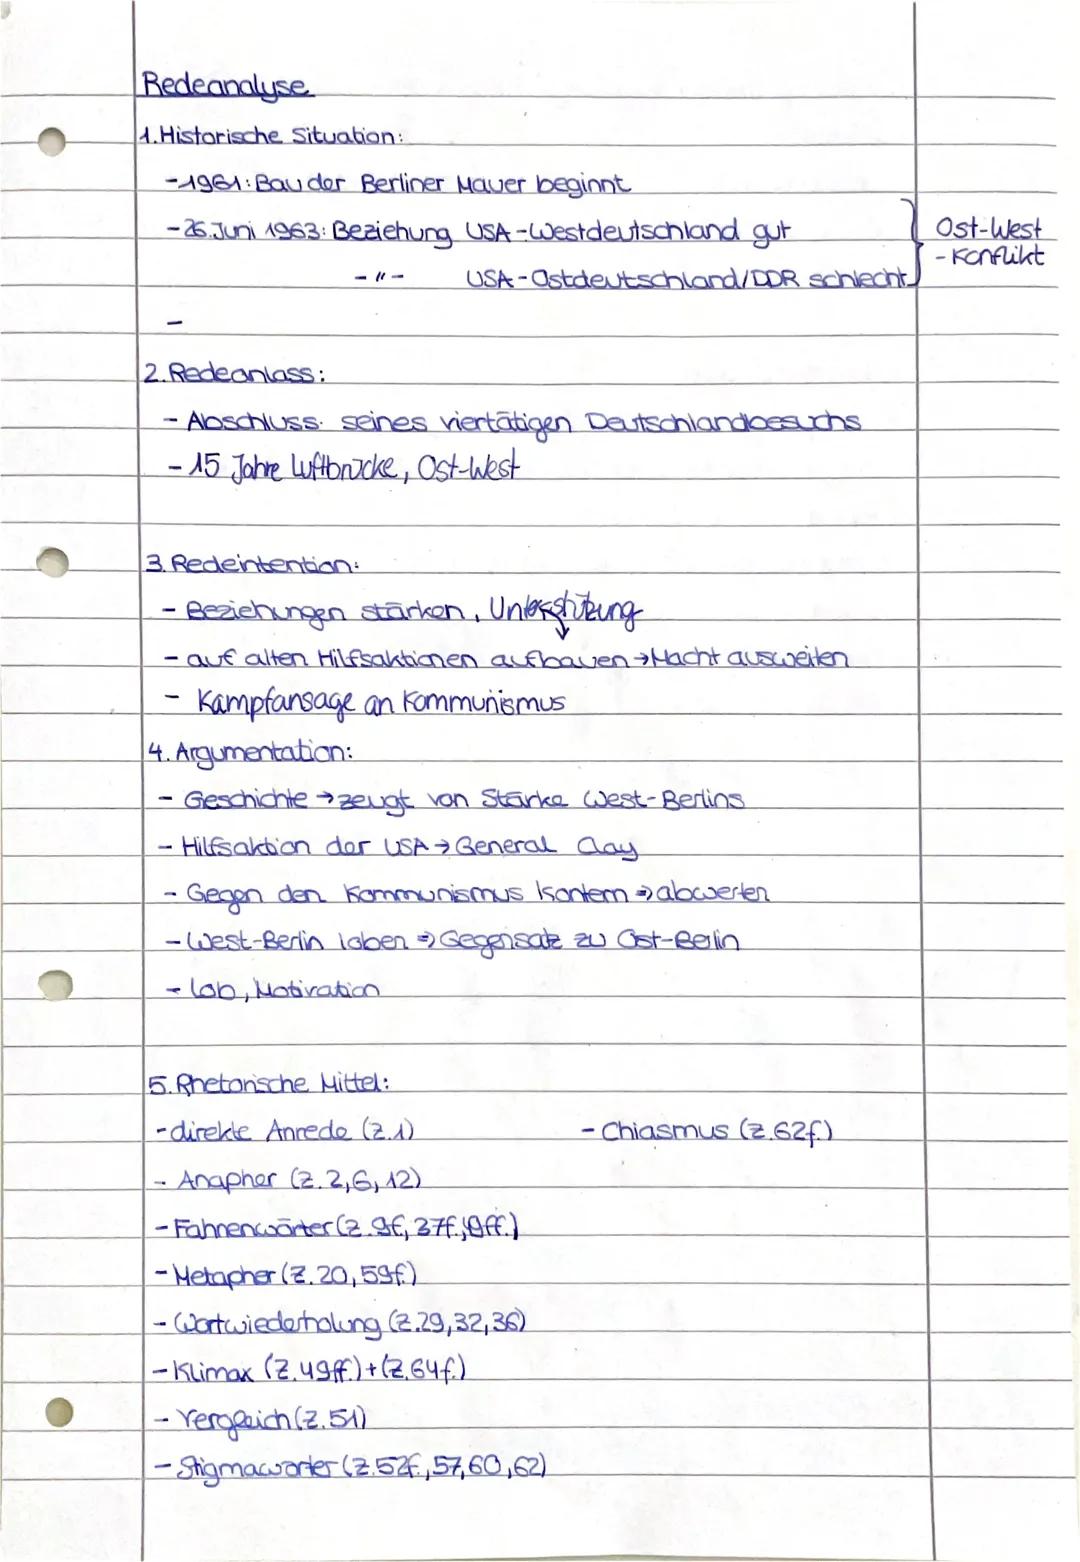 Redeanalyse
1. Historische Situation:
- 1961: Bau der Berliner Mauer beginnt
- 26. Juni 1963: Beziehung USA - Westdeutschland gut
- " - USA - Ostdeutschland/DDR schlecht
Ost-West
- Konflikt
-
2. Redeanlass:
- Abschluss seines viertätigen Deutschlandbesuchs
- 15 Jahre Luftbrücke, Ost-West
3. Redeintention:
- Beziehungen stärken, Unterstützung
- auf alten Hilfsaktionen aufbauen → Macht ausweiten
- Kampfansage an Kommunismus
4. Argumentation:
- Geschichte → zeugt von Stärke West-Berlins
- Hilfsaktion der USA → General Clay
- Gegen den Kommunismus kontern ⇒ abwerten
- West-Berlin loben ⇒ Gegensatz zu Ost-Berlin
- Lob, Motivation
5. Rhetorische Mittel:
- direkte Anrede (Z.1) - Chiasmus (Z.62f.)
- Anapher (Z. 2, 6, 12)
- Fahnenwörter (Z. 9f, 37f.,
- Metapher (Z. 20, 59f.)
- Wortwiederholung (Z.29, 32, 36)
- Klimax (Z. 49ff.) + (Z. 64f.)
- Vergleich (Z. 51)
- Stigmawörter (Z. 52f., 57, 60, 62)